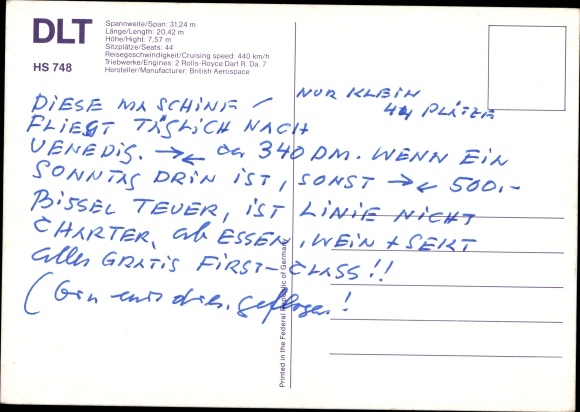 DLT
HS 748
Spannweite/Span: 31,24 m
Länge/Length: 20,42 m
Höhe/Hight: 7,57 m
Sitzplätze/Seats: 44
Reisegeschwindigkeit/Cruising speed: 440 km/h
Triebwerke/Engines: 2 Rolls-Royce Dart R. Da. 7
Hersteller/Manufacturer: British Aerospace
DIESE MASCHINE / NUR KLEIN
44 PLÄTZE
FLIEGT TÄGLICH NACH
VENEDIG. →← ca 340 DM. WENN EIN
SONNTAG DRIN IST, SONST →← 500.-
BISSEL TEUER, IST LINIE NICHT
CHARTER, ab ESSEN, WEIN + SEKT
alles GRATIS FIRST-CLASS!!
(bin mit geflogen!
Printed in the Federal Republic of Germany